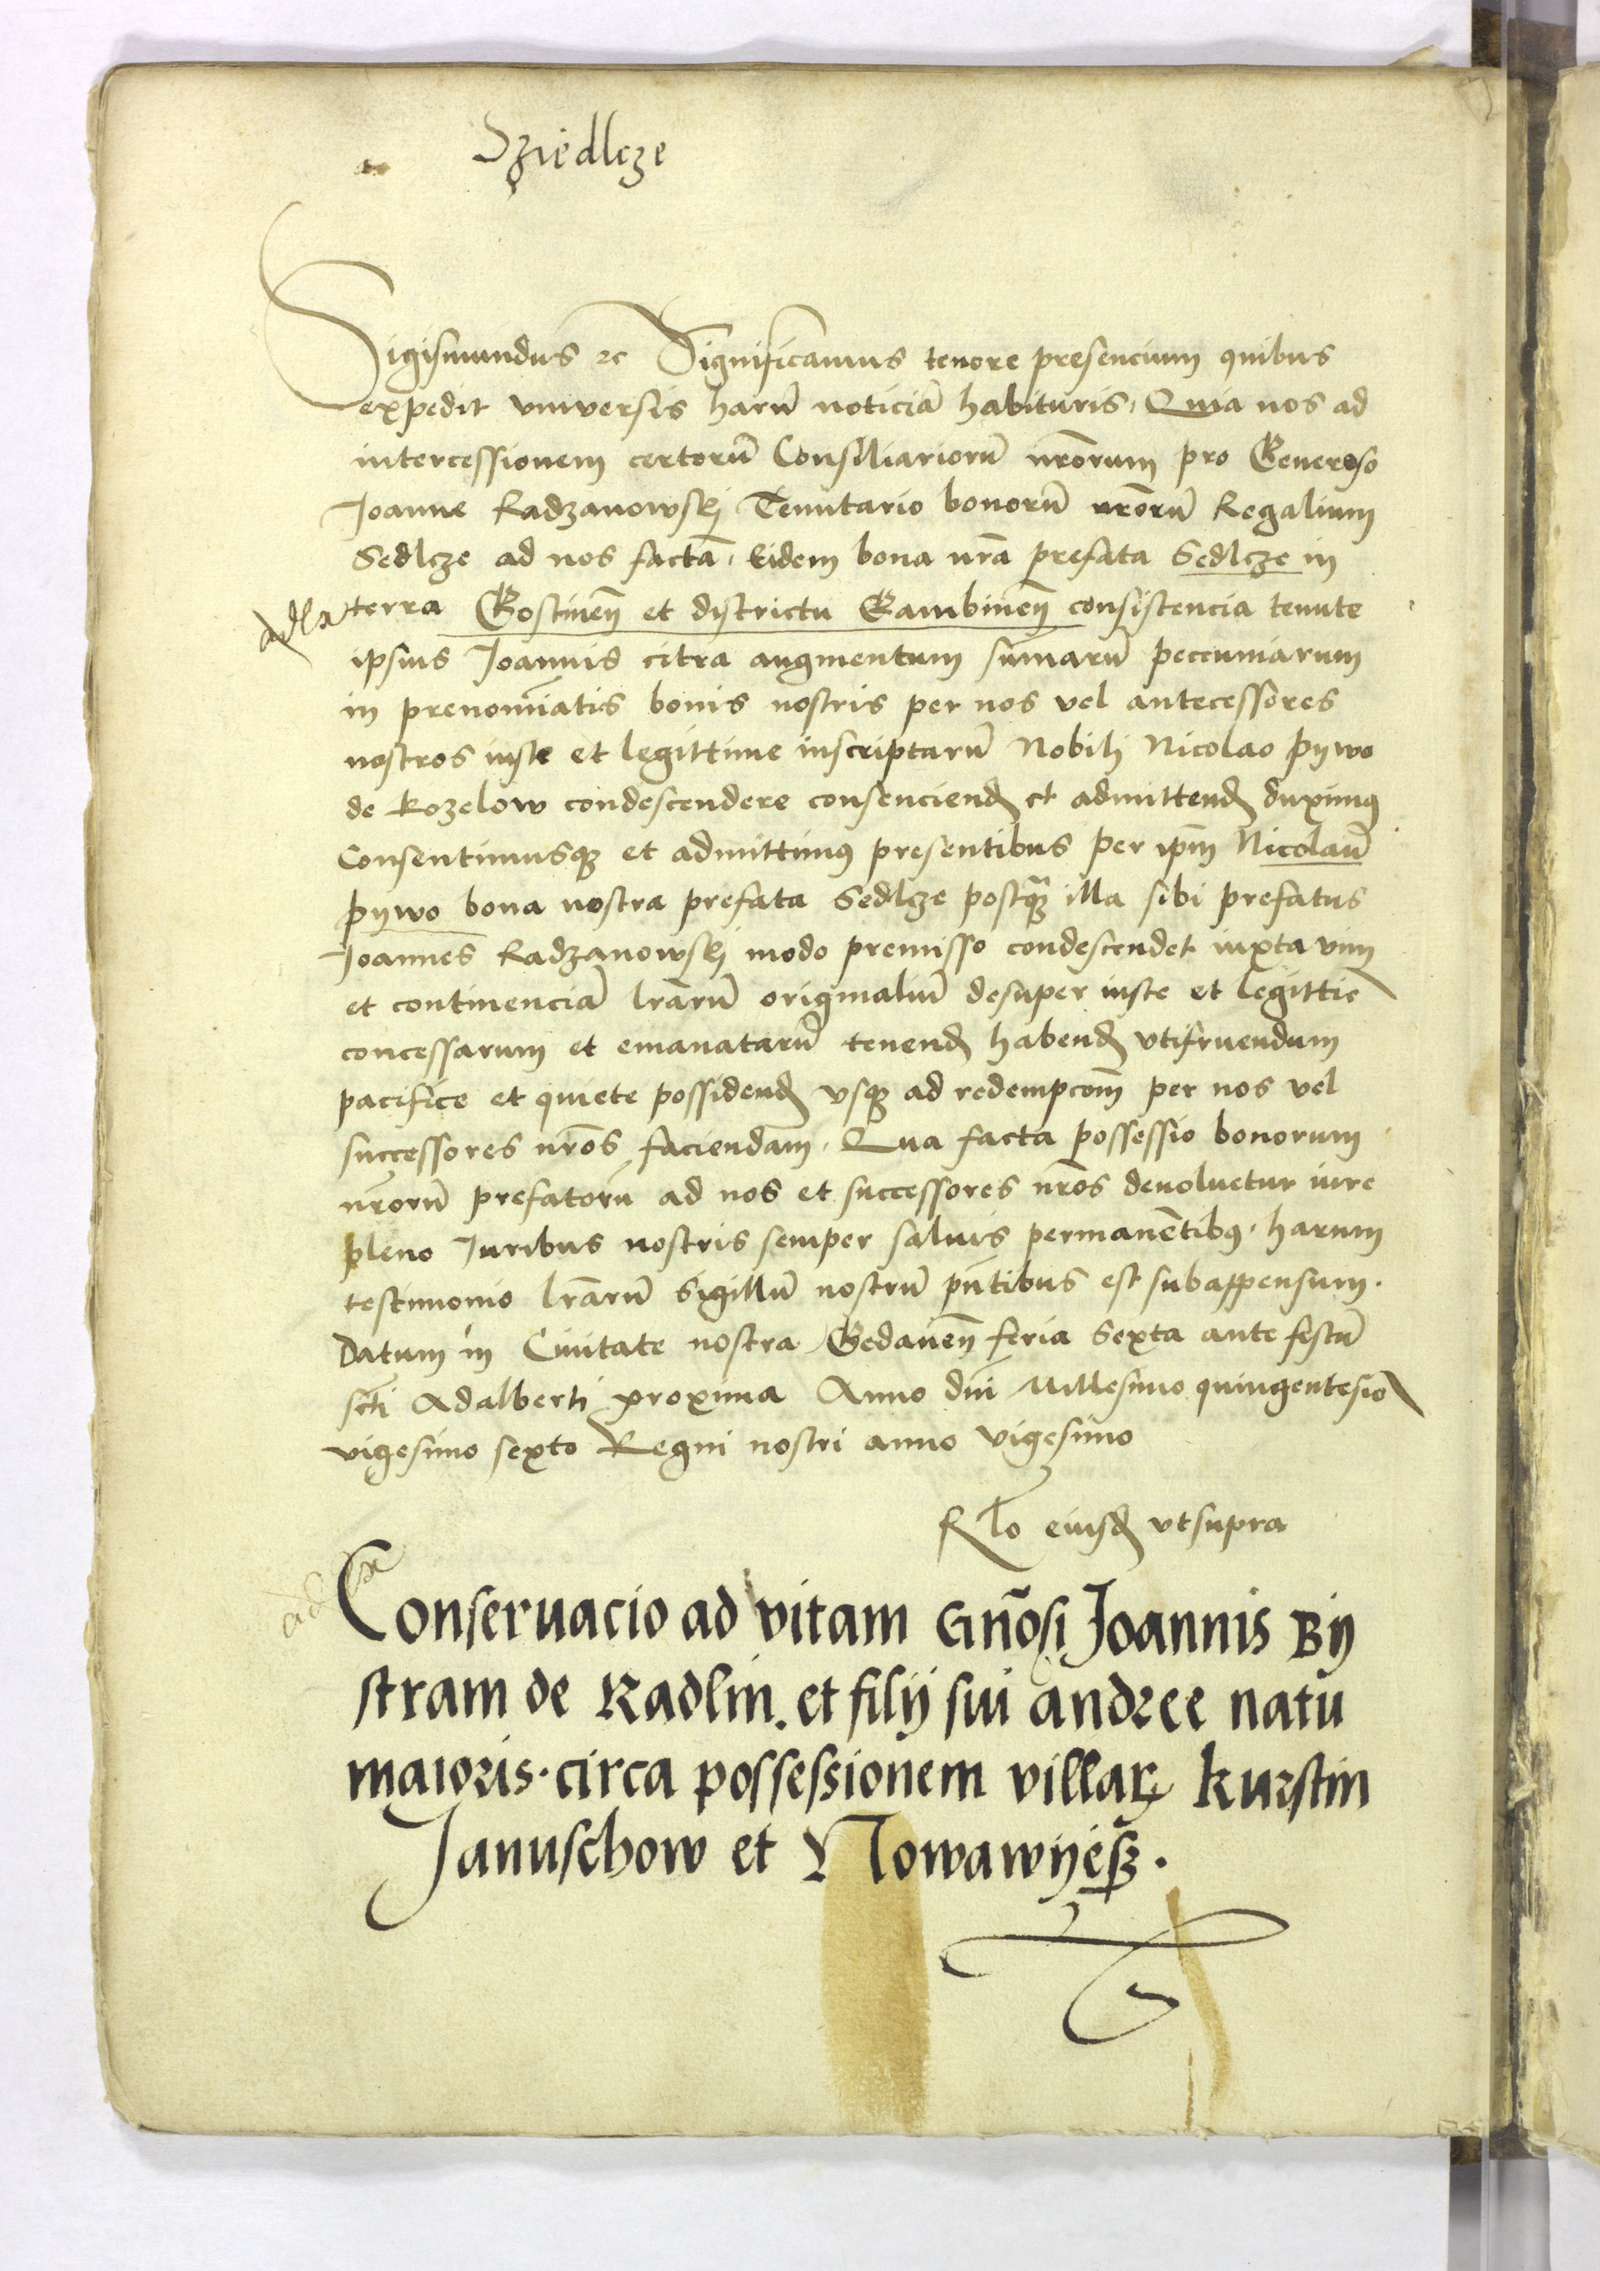 Sziedlcze
Sigismundus ꝛc Significamus tenore presencium quibus
expedit vniversis harū noticiā habituris, Quia nos ad
intercessionem certorū Consiliariorū nr̄orum pro Generoso
Joanne Radzanowskj Tenutario bonorū nr̄orū Regalium
Sedlcze ad nos factā, Eidem bona nr̄a prefata Sedlcze in
terra Gostineň et districtu Gambineň consistencia tenute
ipsius Joannis citra augmentum sūmarū peccuniarum
in prenoīatis bonis nostris per nos vel antecessores
nostros iuste et legittime inscriptarū Nobili Nicolao pywo
de Kozelow condescendere consenciend et admittend duximꝰ
Consentimusqꝫ et admittimꝰ presentibus per ip̄m Nicolaū
pywo bona nostra prefata Sedlcze postqꝫ illa sibi prefatus
Joannes Radzanowskj modo premisso condescendet iuxta vim
et continenciā lr̄arū originaliū desuper iuste et legittīe
concessarum et emanatarū tenend habend vtifruendum
pacifice et quiete possidend vsqꝫ ad redempcōm per nos vel
successores nr̄os faciendam, Qua facta possessio bonorum
nr̄orū prefatorū ad nos et successores nr̄os devoluetur iure
pleno Juribus nostris semper saluis permanētibꝰ, harum
testimonio lr̄arū Sigillū nostrū pn̄tibus est subappensum.
Datum in Ciuitate nostra Gedaneň feria Sexta ante festū
scti Adalberti proxima Anno dnī Millesimo quingentesīo
vigesimo sexto Regni nostri anno vigesimo
Rlo eiusd vt supra
Conseruacio ad vitam Gñosi Joannis By
stram de Radlin. et filij sui andree natu
maioris. circa possessionem villaꝝ kurstin
Januschow et Nowawyesz.